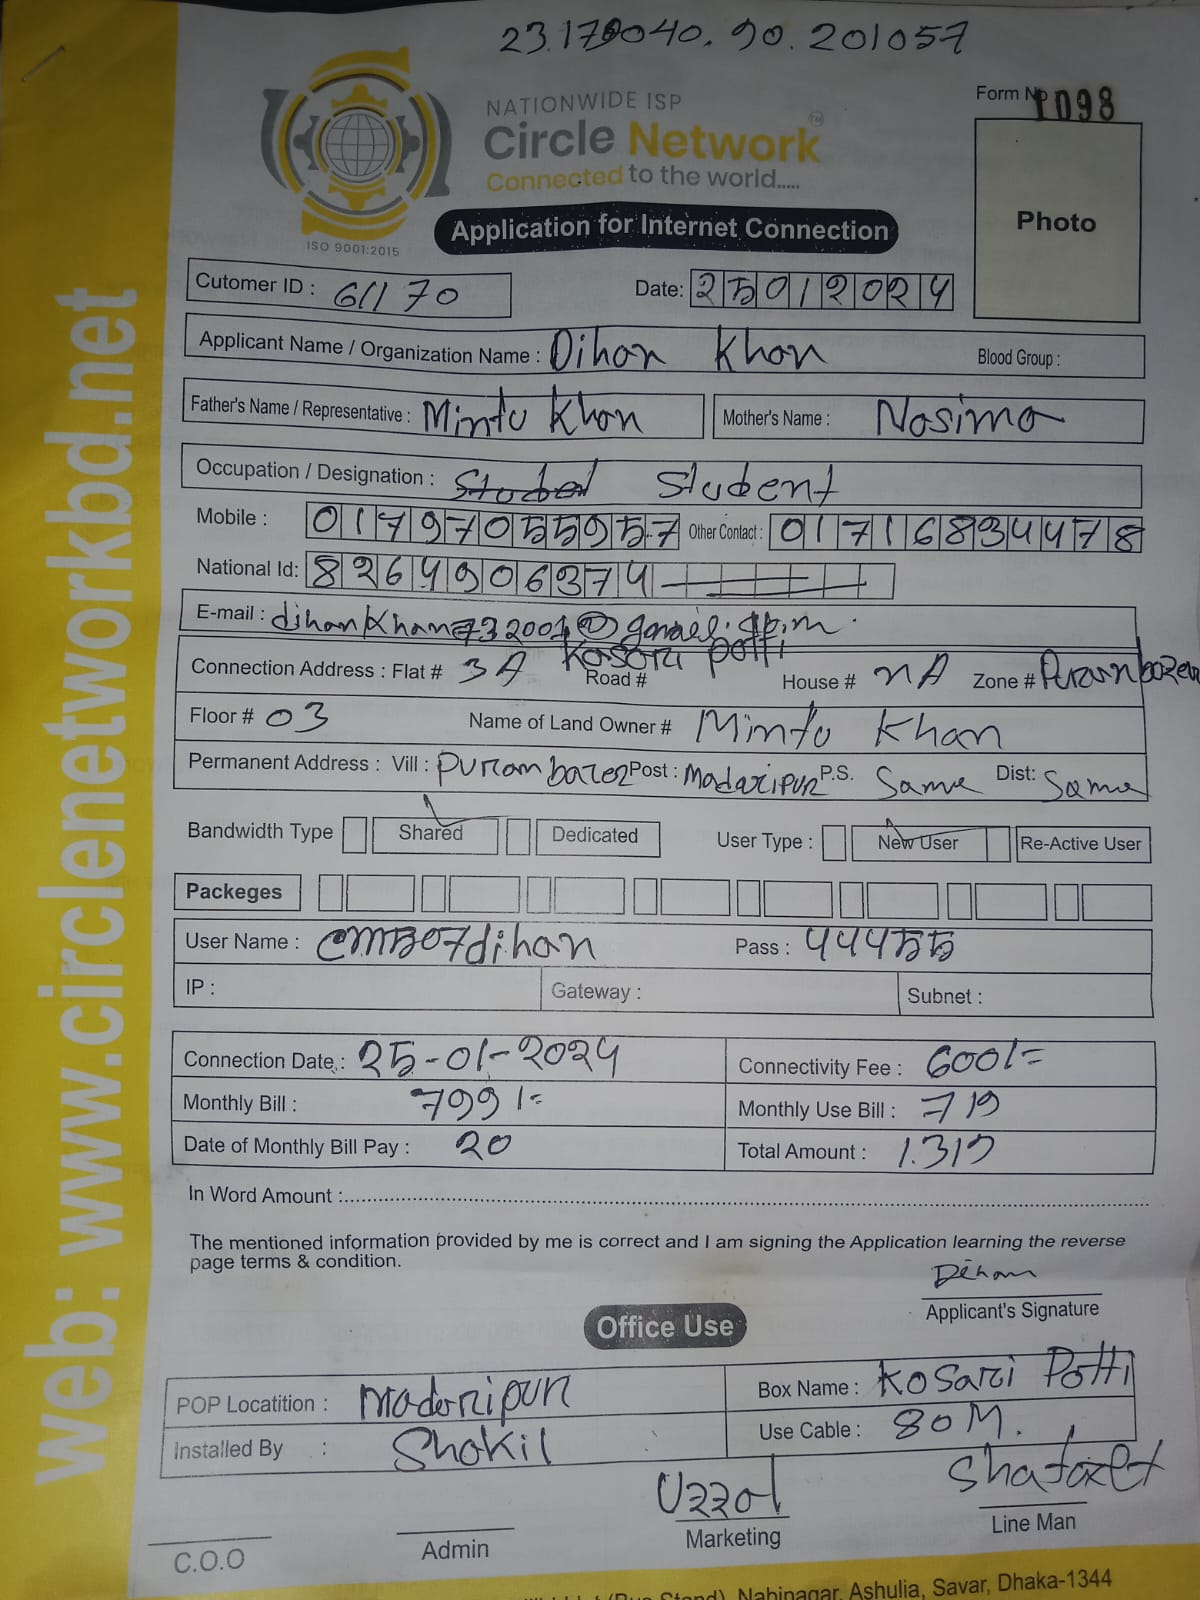 23.179040, 90.201057
NATIONWIDE ISP
Circle Network
Connected to the world.....
ISO 9001:2015
Form No 1098
Photo
Application for Internet Connection
Cutomer ID : 61170
Date: 25012024
Applicant Name / Organization Name : Dihan Khan Blood Group :
Father's Name / Representative : Mintu Khan Mother's Name : Nasima
Occupation / Designation : Student
Mobile : 01797055957 Other Contact : 01716834478
National Id: 8264906374
E-mail :
Connection Address : Flat # 3A Road # Kosari potti House # NA Zone # Puranbazer
Floor # 03 Name of Land Owner # Mintu Khan
Permanent Address : Vill : Puranbazer Post : Madaripur P.S. Same Dist: Same
Bandwidth Type Shared Dedicated User Type : New User Re-Active User
Packeges
User Name : CMB07dihan Pass : 444555
IP : Gateway : Subnet :
Connection Date : 25-01-2024 Connectivity Fee : 600/=
Monthly Bill : 799/= Monthly Use Bill : 719
Date of Monthly Bill Pay : 20 Total Amount : 1319
In Word Amount :
The mentioned information provided by me is correct and I am signing the Application learning the reverse
page terms & condition.
Dihan
Applicant's Signature
Office Use
POP Locatition : Madaripur Box Name : Kosari Potti
Installed By : Shakil Use Cable : 80M.
Uzzal
C.O.O Admin Marketing Line Man
Nabinagar, Ashulia, Savar, Dhaka-1344
web: www.circlenetworkbd.net